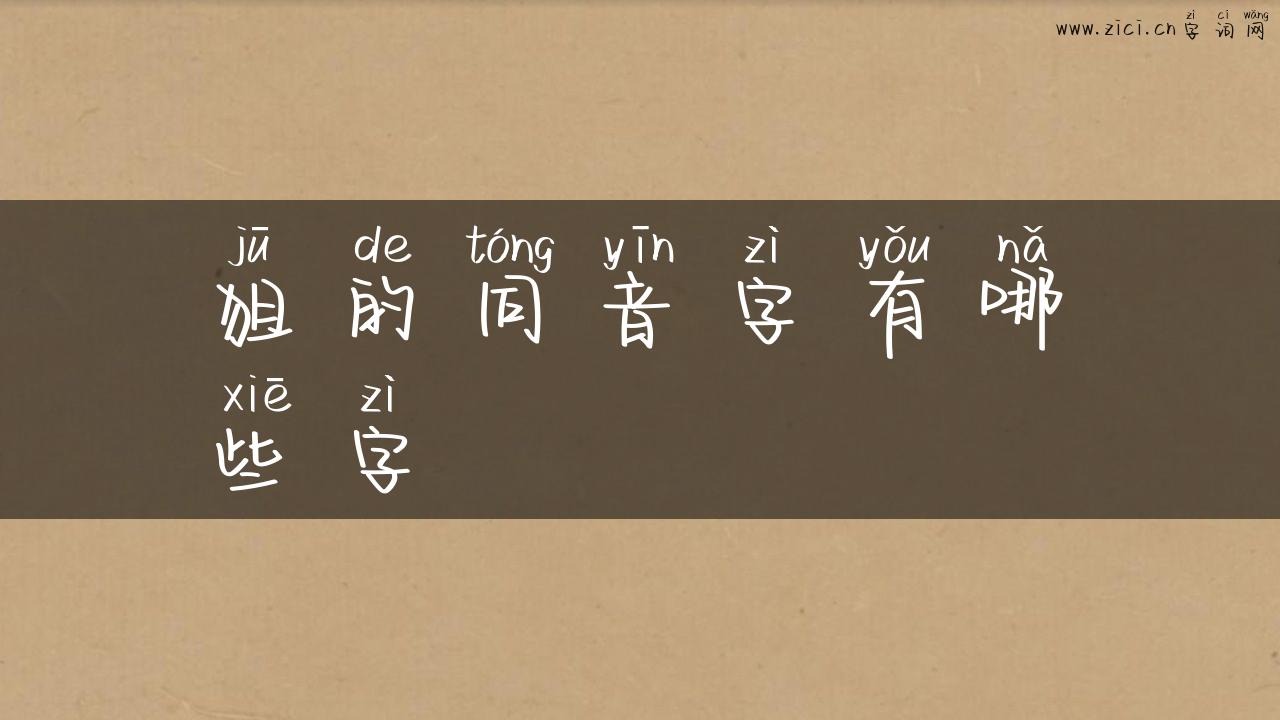 zì cí wǎng
www.zici.cn 字 词 网
jū de tóng yīn zì yǒu nǎ
狙 的 同 音 字 有 哪
xiē zì
些 字